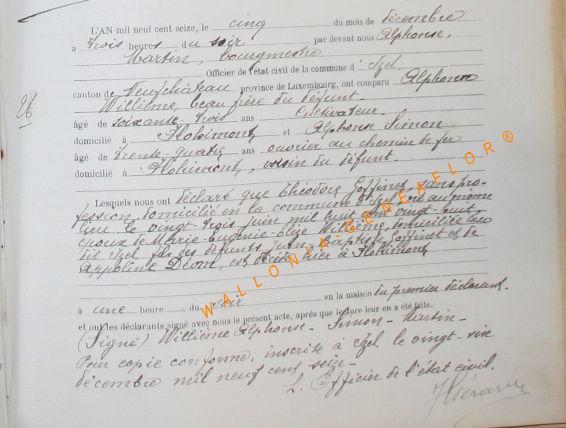 L'AN mil neuf cent seize, le cinq du mois de décembre
à trois heures du soir par devant nous Alphonse,
Martin, bourgmestre
Officier de l'état civil de la commune d'Izel
canton de Neufchâteau province de Luxembourg, ont comparu Alphonse
Willième, beau frère du défunt.
âgé de soixante-trois ans cultivateur.
26
domicilié à Florimont et Alphonse Simon
âgé de trente-quatre ans ouvrier au chemin de fer
domicilié à Florimont, voisin du défunt.
Lesquels nous ont déclaré que Théodore Goffinet, sans pro-
fession, domicilié en la commune d'Izel né au même
lieu le vingt-trois juin mil huit cent vingt-huit,
époux de Marie-Eugénie-Elise Willième, domiciliée au
dit Izel, fils des défunts Jean-Baptiste Goffinet et de
Appoline Déom, est décédé hier à Florimont
à une heure du soir en la maison du premier déclarant.
et ont les déclarants signé avec nous le présent acte, après que lecture leur en a été faite.
(Signé) Willième Alphonse - Simon - Martin -
Pour copie conforme, inscrite à Izel, le vingt-six
décembre mil neuf cent seize -
L'Officier de l'état civil.
WALLONIA GENEAFLOR ®